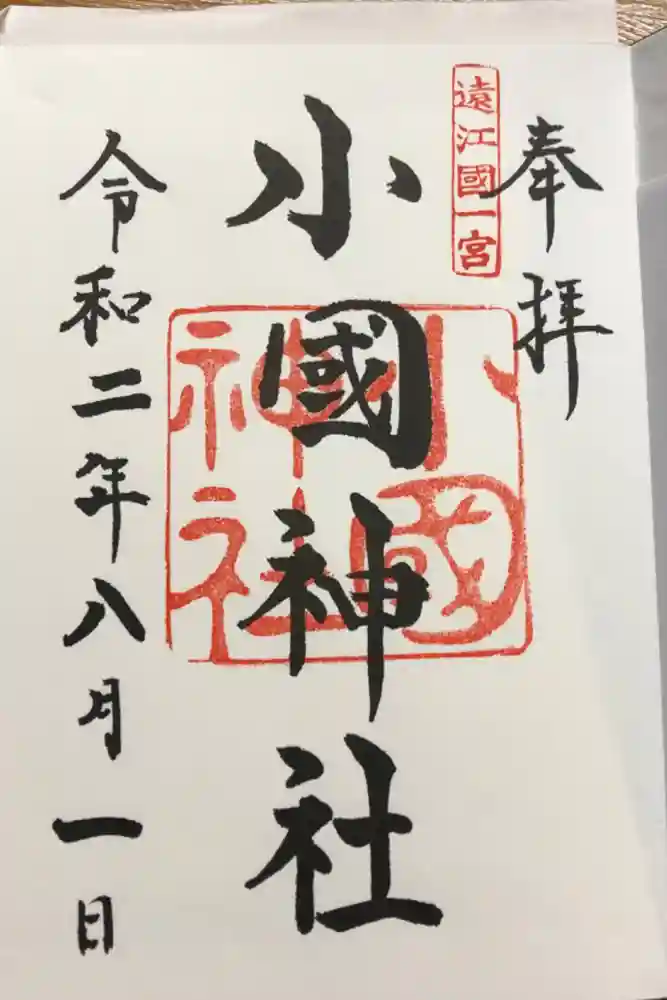 奉拝
遠江國一宮
小國神社
小國神社
令和二年八月一日